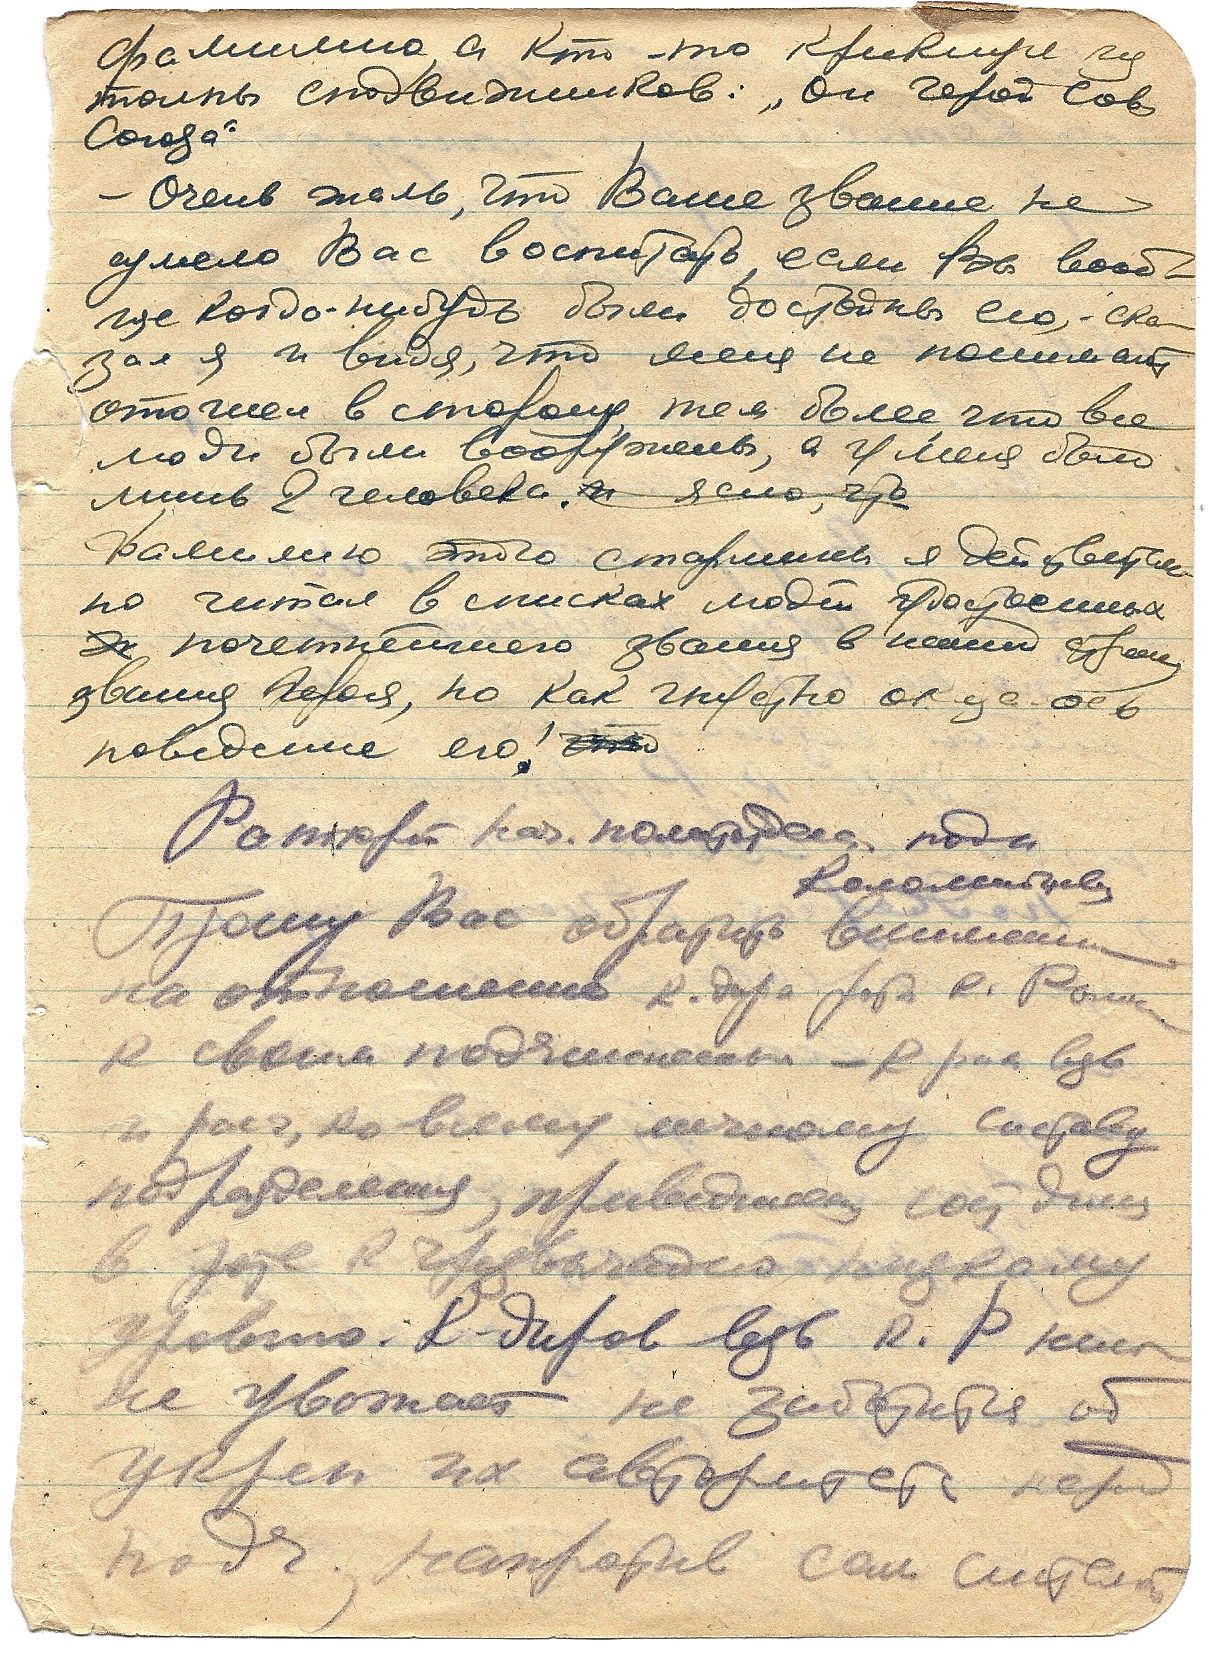 фамилию, а кто-то крикнул из
толпы сподвижников: „Он герой Сов
Союза“
– Очень жаль, что Ваше звание не
сумело Вас воспитать, если Вы вооб-
ще когда-нибудь были достойны его, - ска-
зал я и видя, что меня не понимают
отошел в сторону, тем более что все
люди были вооружены, а у меня было
лишь 2 человека. и ясно, что
Фамилию этого старшины я действитель-
но читал в списках людей удостоенных
почетнейшего звания в нашей стране
звания Героя, но как гнусно оказалось
поведение его!
Рапорт нач. политотдела подп
Коломийцеву
Прошу Вас обратить внимание
на отношение к-дира роты к.
к своим подчиненным – к-рам взв
и рот, ко всему личному составу
подразделения, приведшему
в роте к чрезвычайно низкому
уровню. К-диров взв к. Р
не уважает не заботится об
укреп их авторитета перед
подч., напротив сам считает